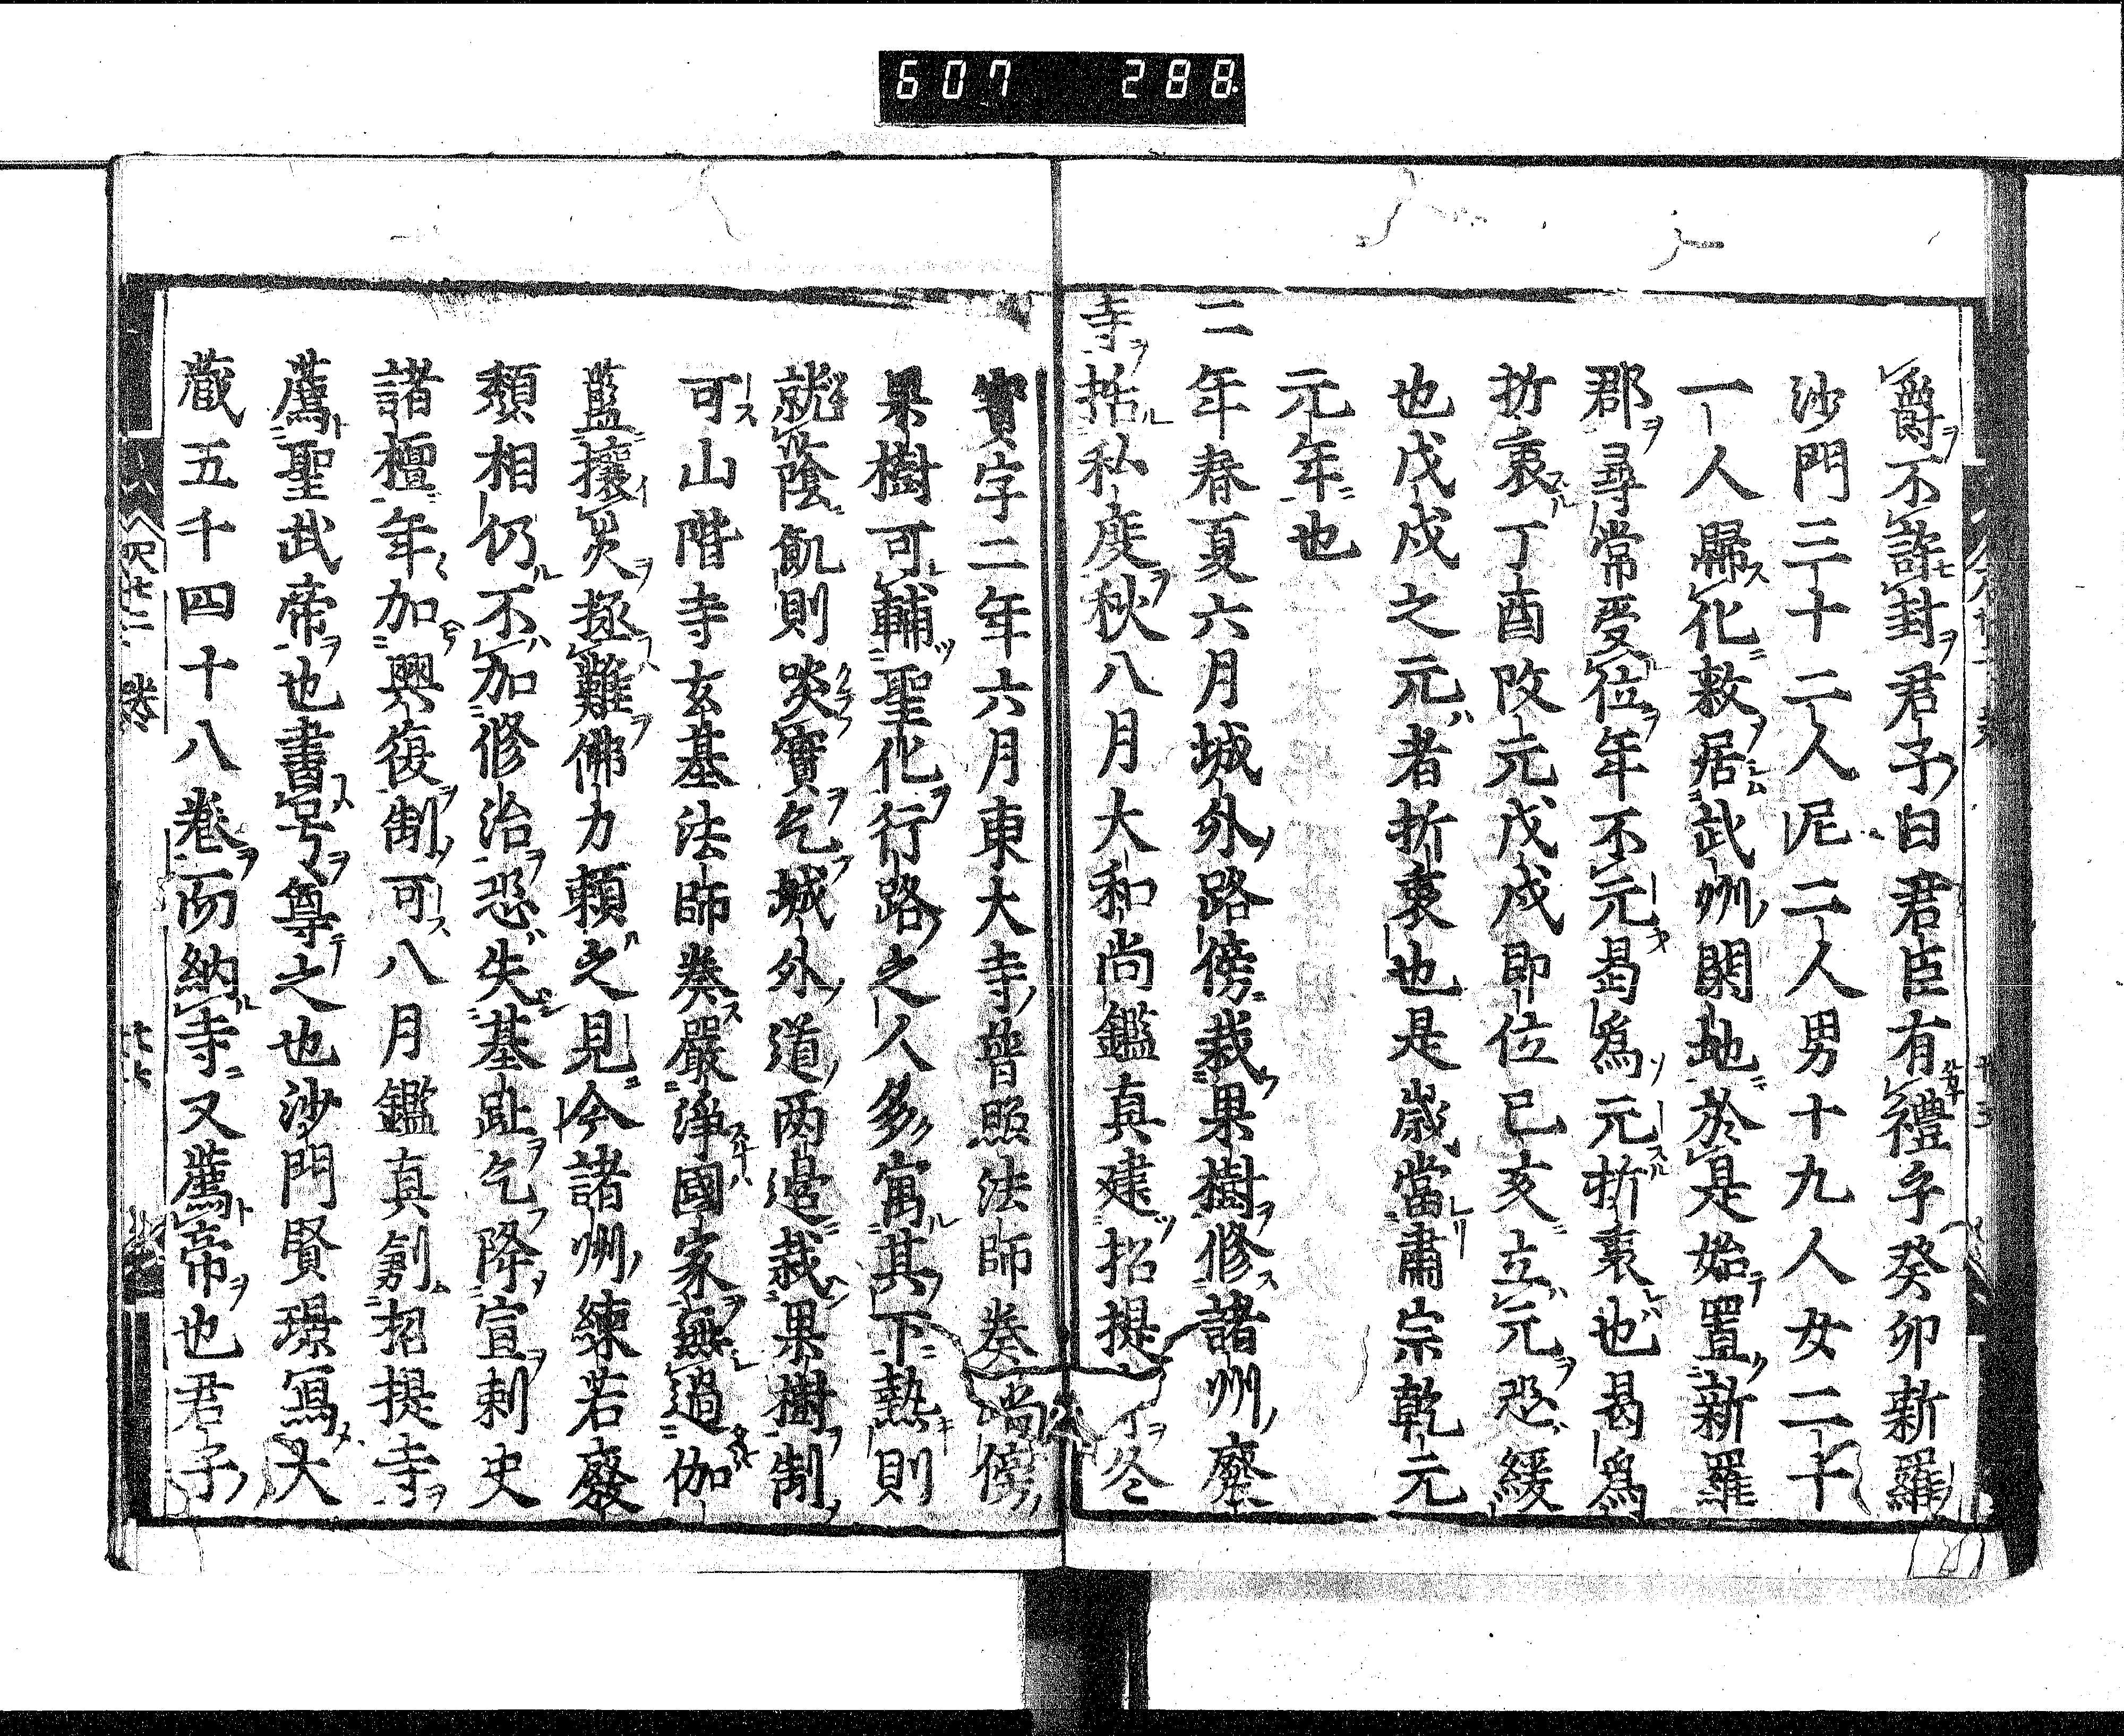 607 288
爵不許封君子曰君臣有禮乎癸卯新羅
沙門三十二人尼二人男十九人女二十
一人歸化敕居武州閑地於是始置新羅
郡尋常受位年不元曷爲元折衷也曷爲
折衷丁酉改元戊戌即位已亥立元恐緩
也戊戌之元者折衷也是歲當肅宗乾元
元年也
二年春夏六月城外路傍栽果樹修諸州廢
寺括私度秋八月大和尚鑑真建招提 冬
寶字二年六月東大寺普照法師奏 傍
果樹可輔聖化行路之人多寓其下熱則
就蔭飢則啖實乞城外道兩邊栽果樹制
可山階寺玄基法師奏嚴淨國家無過伽
藍攘災拯難佛力賴之見今諸州練若廢
頽相仍不加修治恐失基趾乞降宣刺史
諸檀年加興復制可八月鑑真創招提寺
薦聖武帝也書号尊之也沙門賢璟寫大
藏五千四十八卷而納寺又薦帝也君子